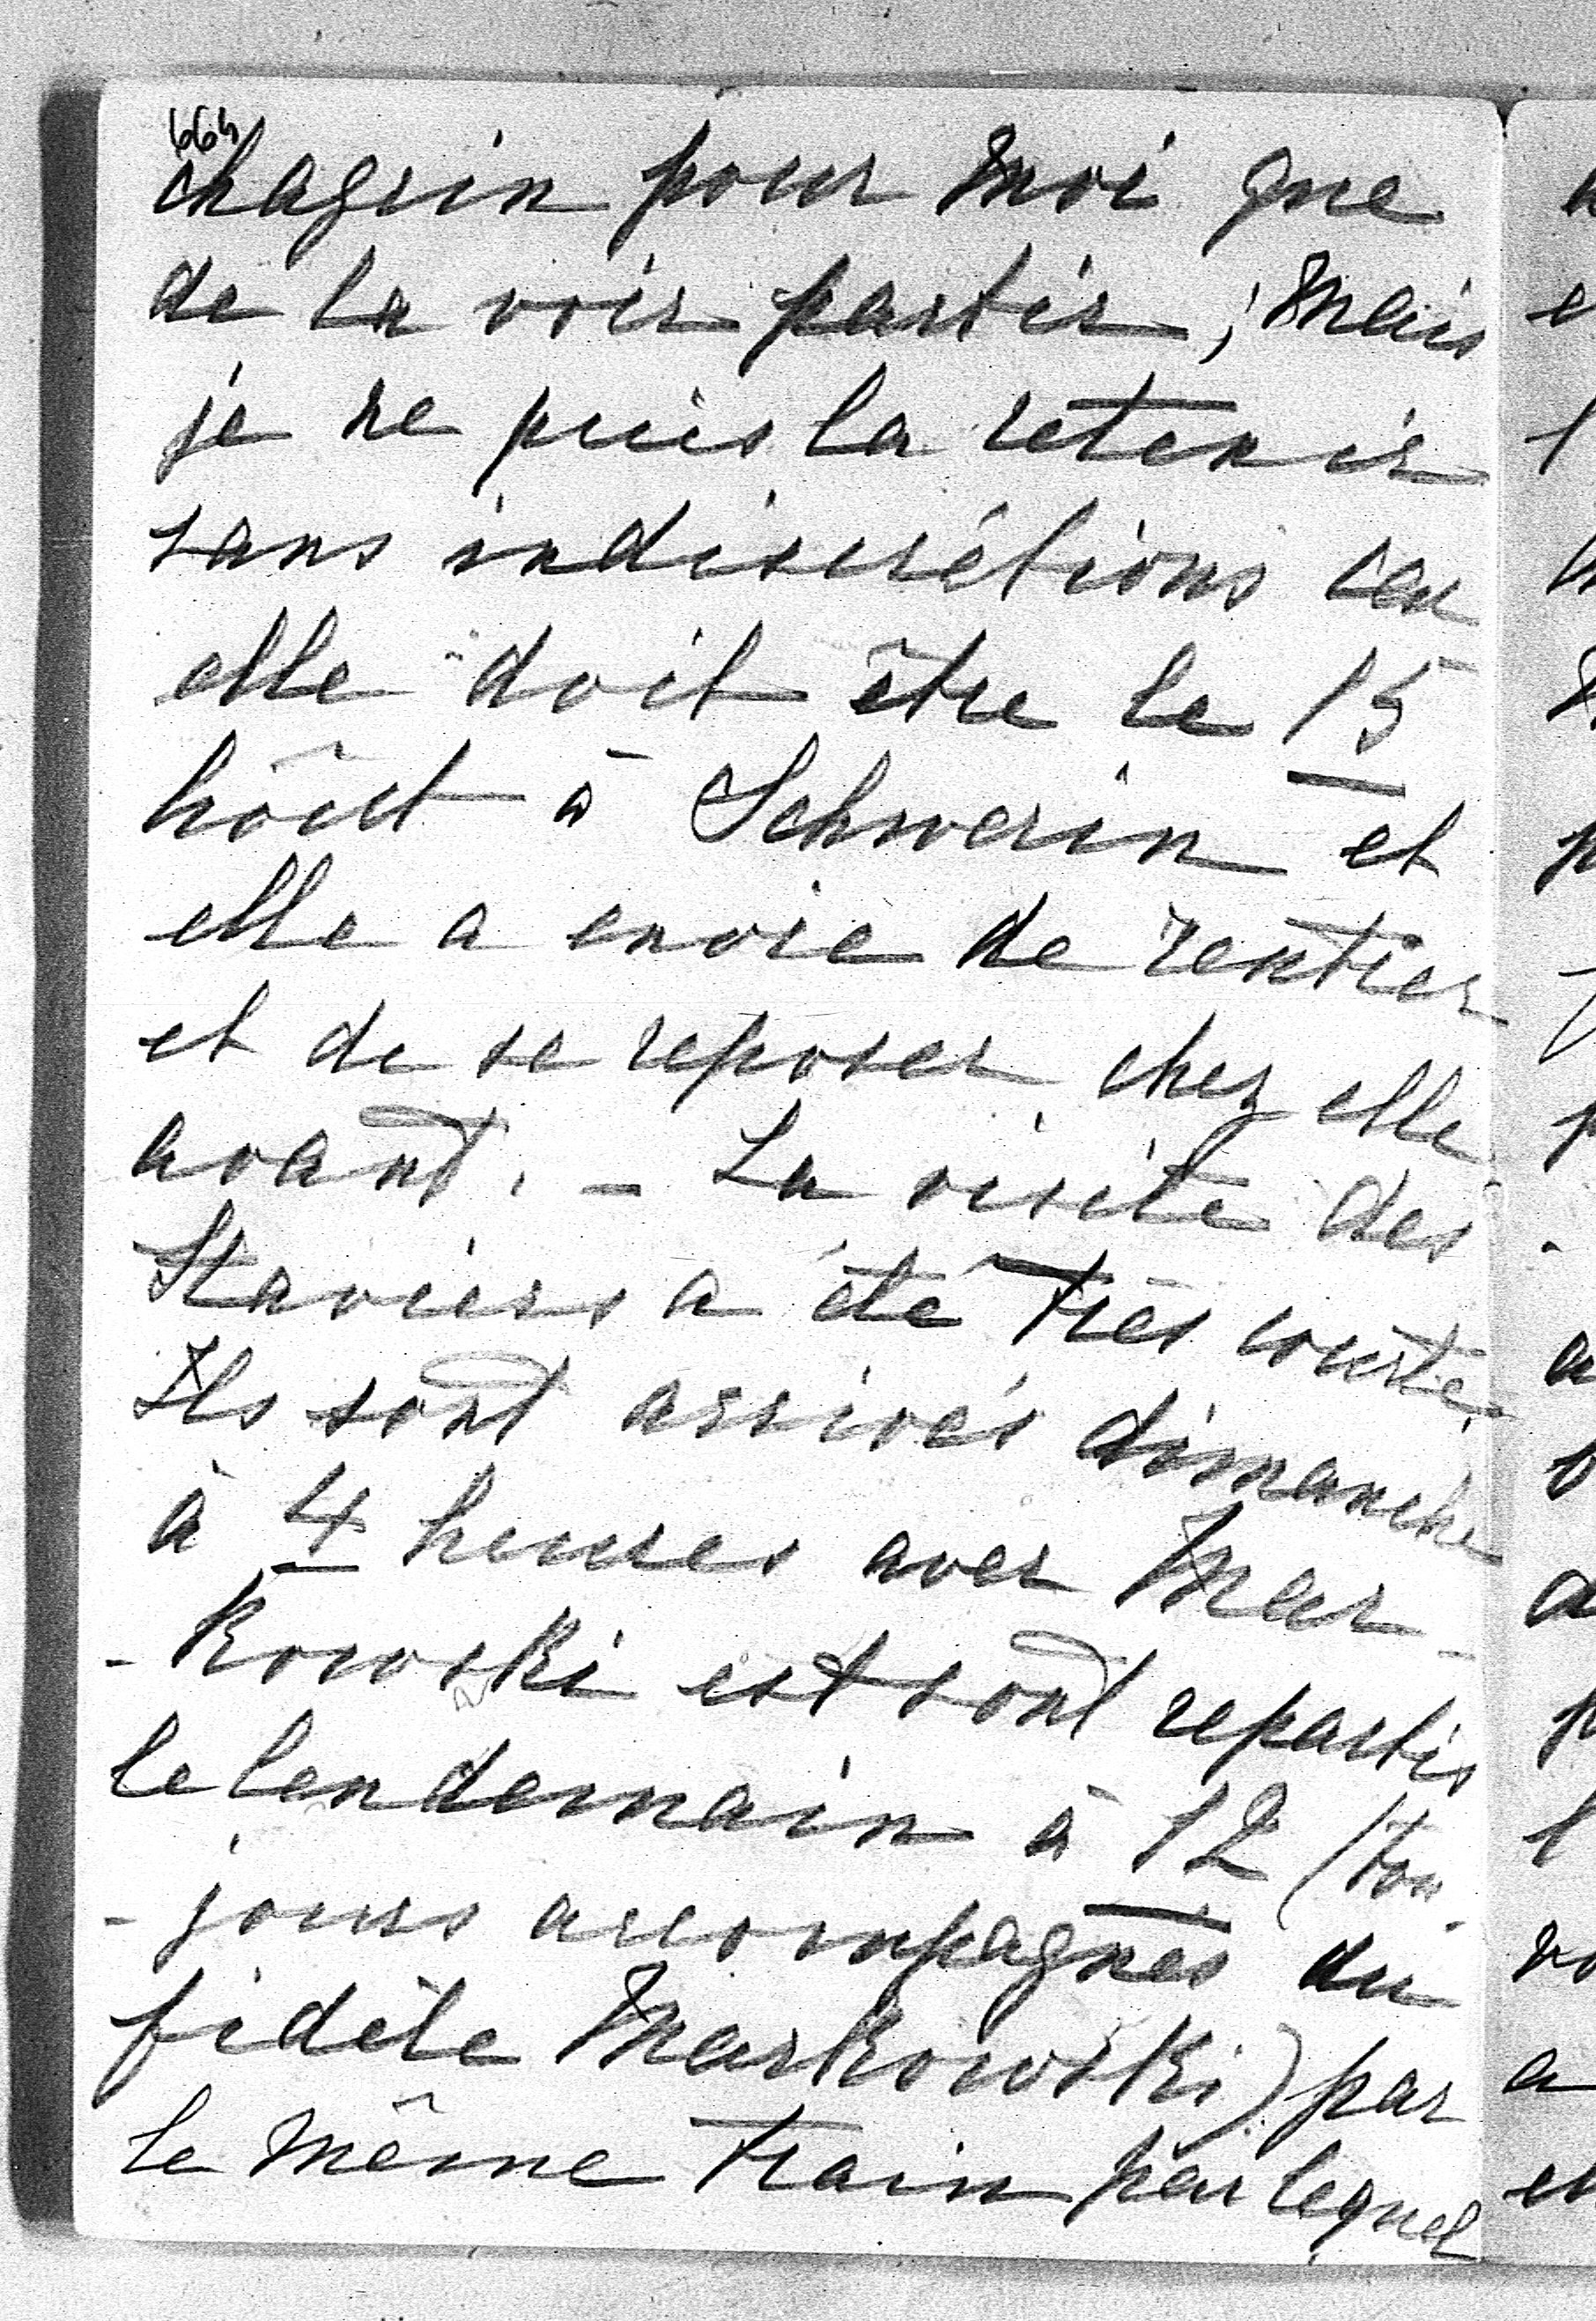 664
chagrin pour moi que
de la voir partir; mais
je ne puis la retenir
sans indiscrétions car
elle doit être le 15
hoût à Schwerin et
elle a envie de rentrer
et de se reposer chez elle
avant. – La visite des
Staviers a été très courte.
Ils sont arrivés dimanche
à 4 heures avec Mar-
-kowski est sont repartis
le lendemain à 12 (tou-
-jours accompagnés du
fidèle Markowski) par
le même train par lequel